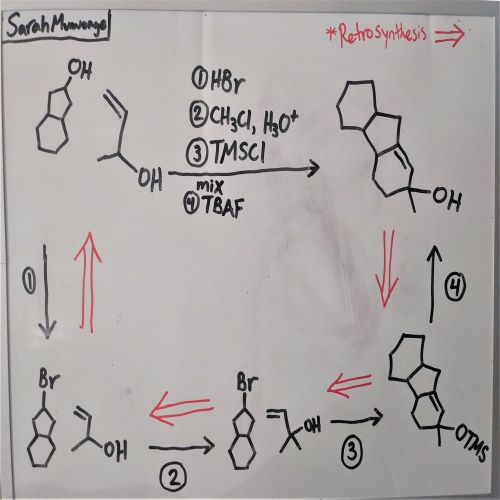 Sarah Munongo
*Retrosynthesis
OH
OH
①HBr
②CH₃Cl, H₃O⁺
③TMSCl
mix
④TBAF
OH
①
④
Br
OH
②
Br
OH
③
OTMS